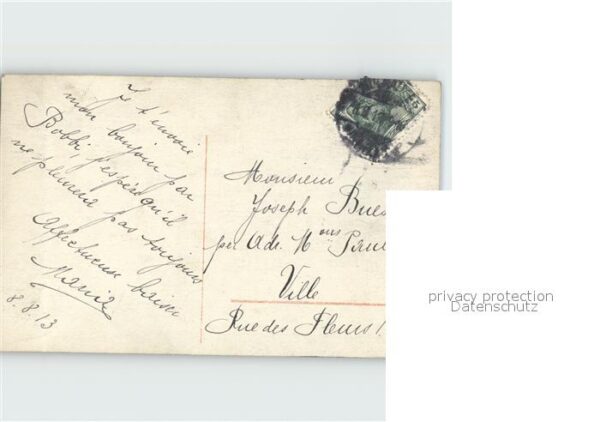 Je t'envoie
mon bonjour par
Bobbi, j'espère qu'il
ne pleurera pas toujours
Affectueux baiser
Maria
8.8.13
Monsieur
Joseph Bues
per Adr. Mons Paul
Ville
Rue des Fleurs 1
privacy protection
Datenschutz